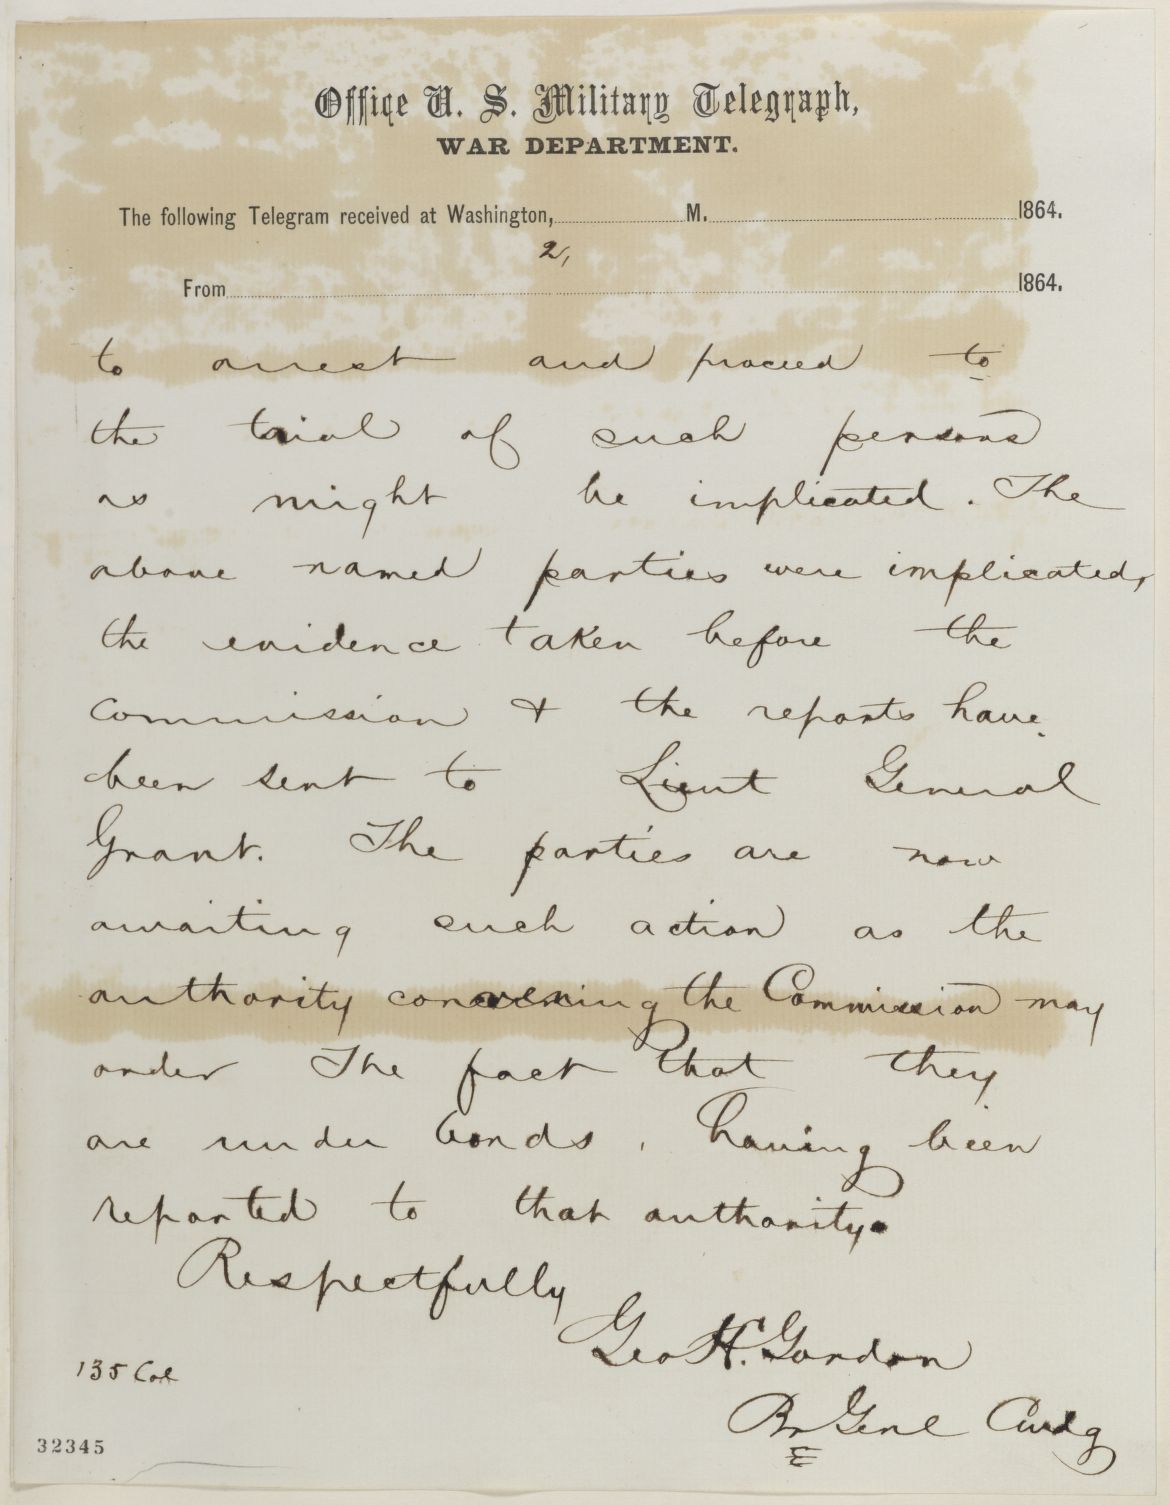 Office U. S. Military Telegraph,
WAR DEPARTMENT.
The following Telegram received at Washington, M. 1864.
2,
From 1864.
to arrest and proceed to
the trial of such persons
as might be implicated. The
above named parties were implicated,
the evidence taken before the
commission & the reports have
been sent to Lieut General
Grant. The parties are now
awaiting such action as the
authority convening the Commission may
order The fact that they
are under bonds, having been
reported to that authority.
Respectfully
Geo H. Gordon
Br Genl Cmdg
135 Col
32345